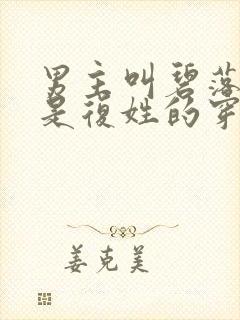 男主叫碧落
是復姓的穿
姜克美